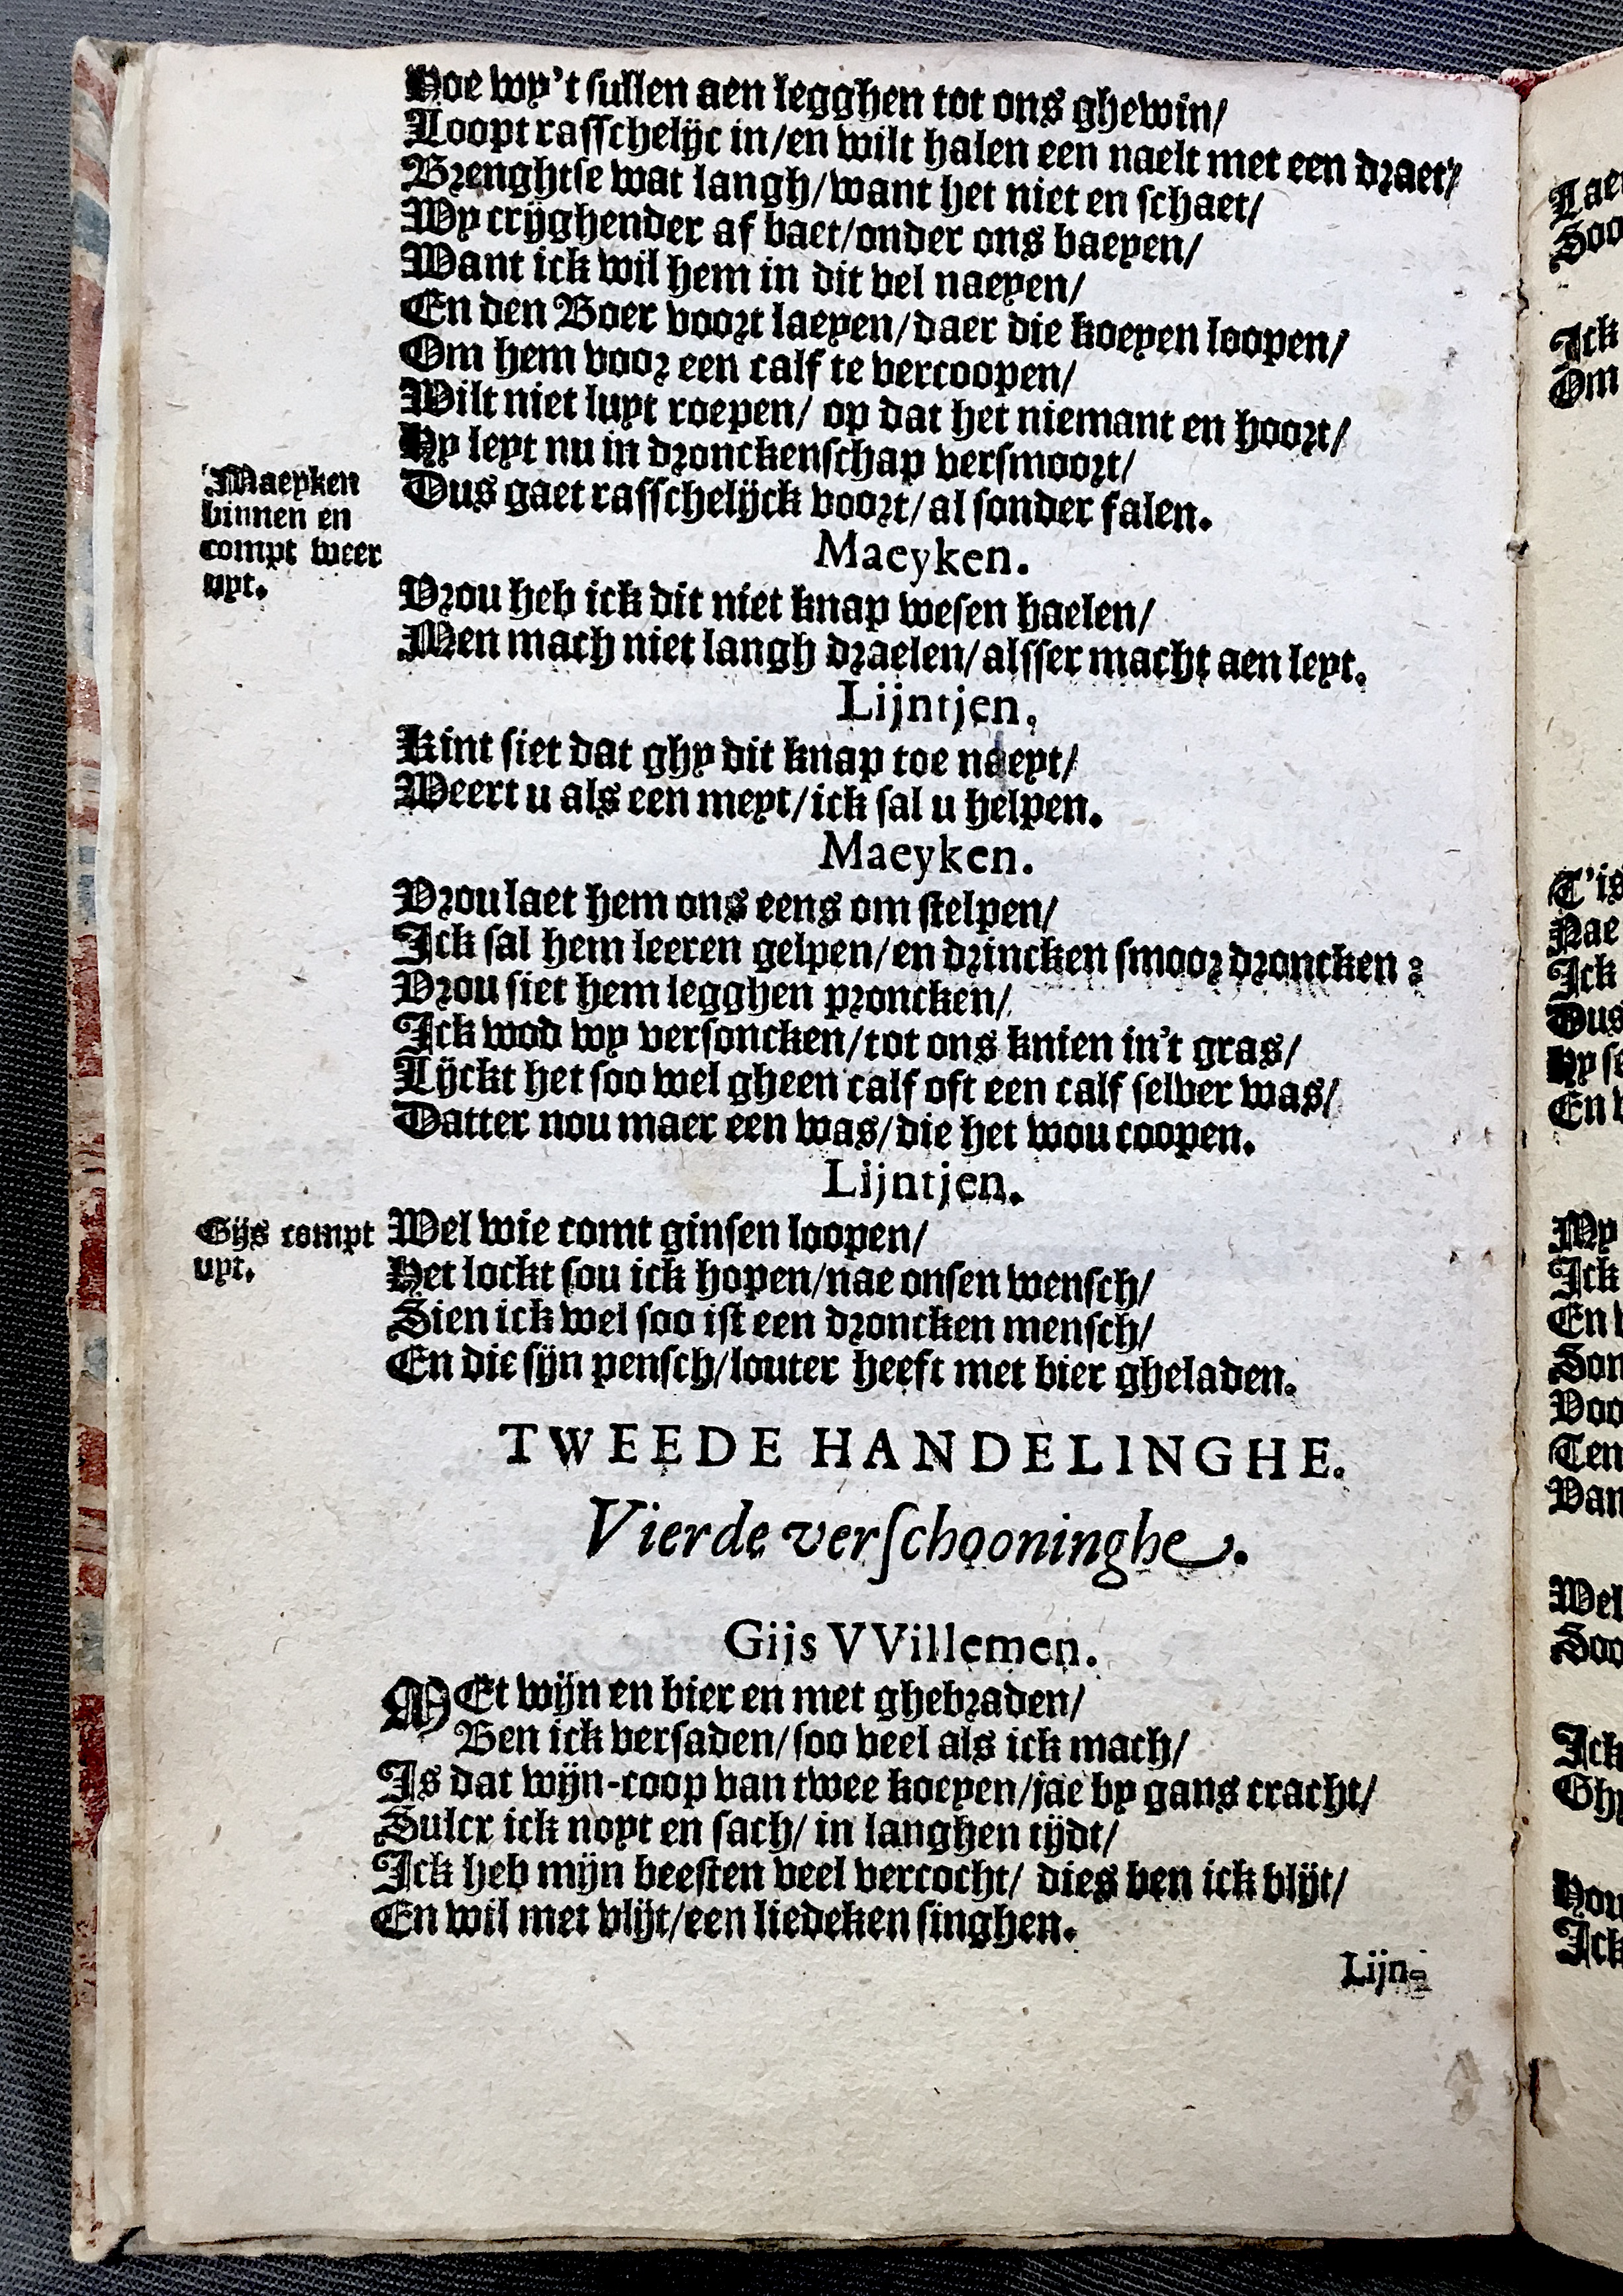 Hoe wy't sullen aen legghen tot ons ghewin/
Loopt rasschelijc in/en wilt halen een naelt met een draet/
Brenghtse wat langh/want het niet en schaet/
Wy crijghender af baet/onder ons baeyen/
Want ick wil hem in dit vel naeyen/
En den Boer voort laeyen/daer die koeyen loopen/
Om hem voor een calf te vercoopen/
Wilt niet luyt roepen/ op dat het niemant en hoort/
Hy leyt nu in dronckenschap versmoort/
Dus gaet rasschelijck voort/al sonder falen.
Maeyken
binnen en
compt weer
uyt.
Maeyken.
Vrou heb ick dit niet knap wesen haelen/
Men mach niet langh draelen/alsser macht aen leyt.
Lijntjen.
Kint siet dat ghy dit knap toe naeyt/
Weert u als een meyt/ick sal u helpen.
Maeyken.
Vrou laet hem ons eens om stelpen/
Ick sal hem leeren gelpen/en drincken smoor droncken?
Vrou siet hem legghen proncken/
Ick wod wy versoncken/tot ons knien in't gras/
Lijckt het soo wel gheen calf oft een calf selver was/
Datter nou maer een was/die het wou coopen.
Lijntjen.
Gijs compt
uyt.
Wel wie comt ginsen loopen/
Het lockt sou ick hopen/nae onsen wensch/
Sien ick wel soo ist een droncken mensch/
En die sijn pensch/louter heeft met bier gheladen.
TWEEDE HANDELINGHE.
Vierde verschooninghe.
Gijs VVillemen.
MEt wijn en bier en met ghebraden/
Ben ick versaden/soo veel als ick mach/
Is dat wijn-coop van twee koeyen/jae by gans cracht/
Sulcx ick noyt en sach/ in langhen tijdt/
Ick heb mijn beesten veel vercocht/ dies ben ick blijt/
En wil met vlijt/een liedeken singhen.
Lijn-